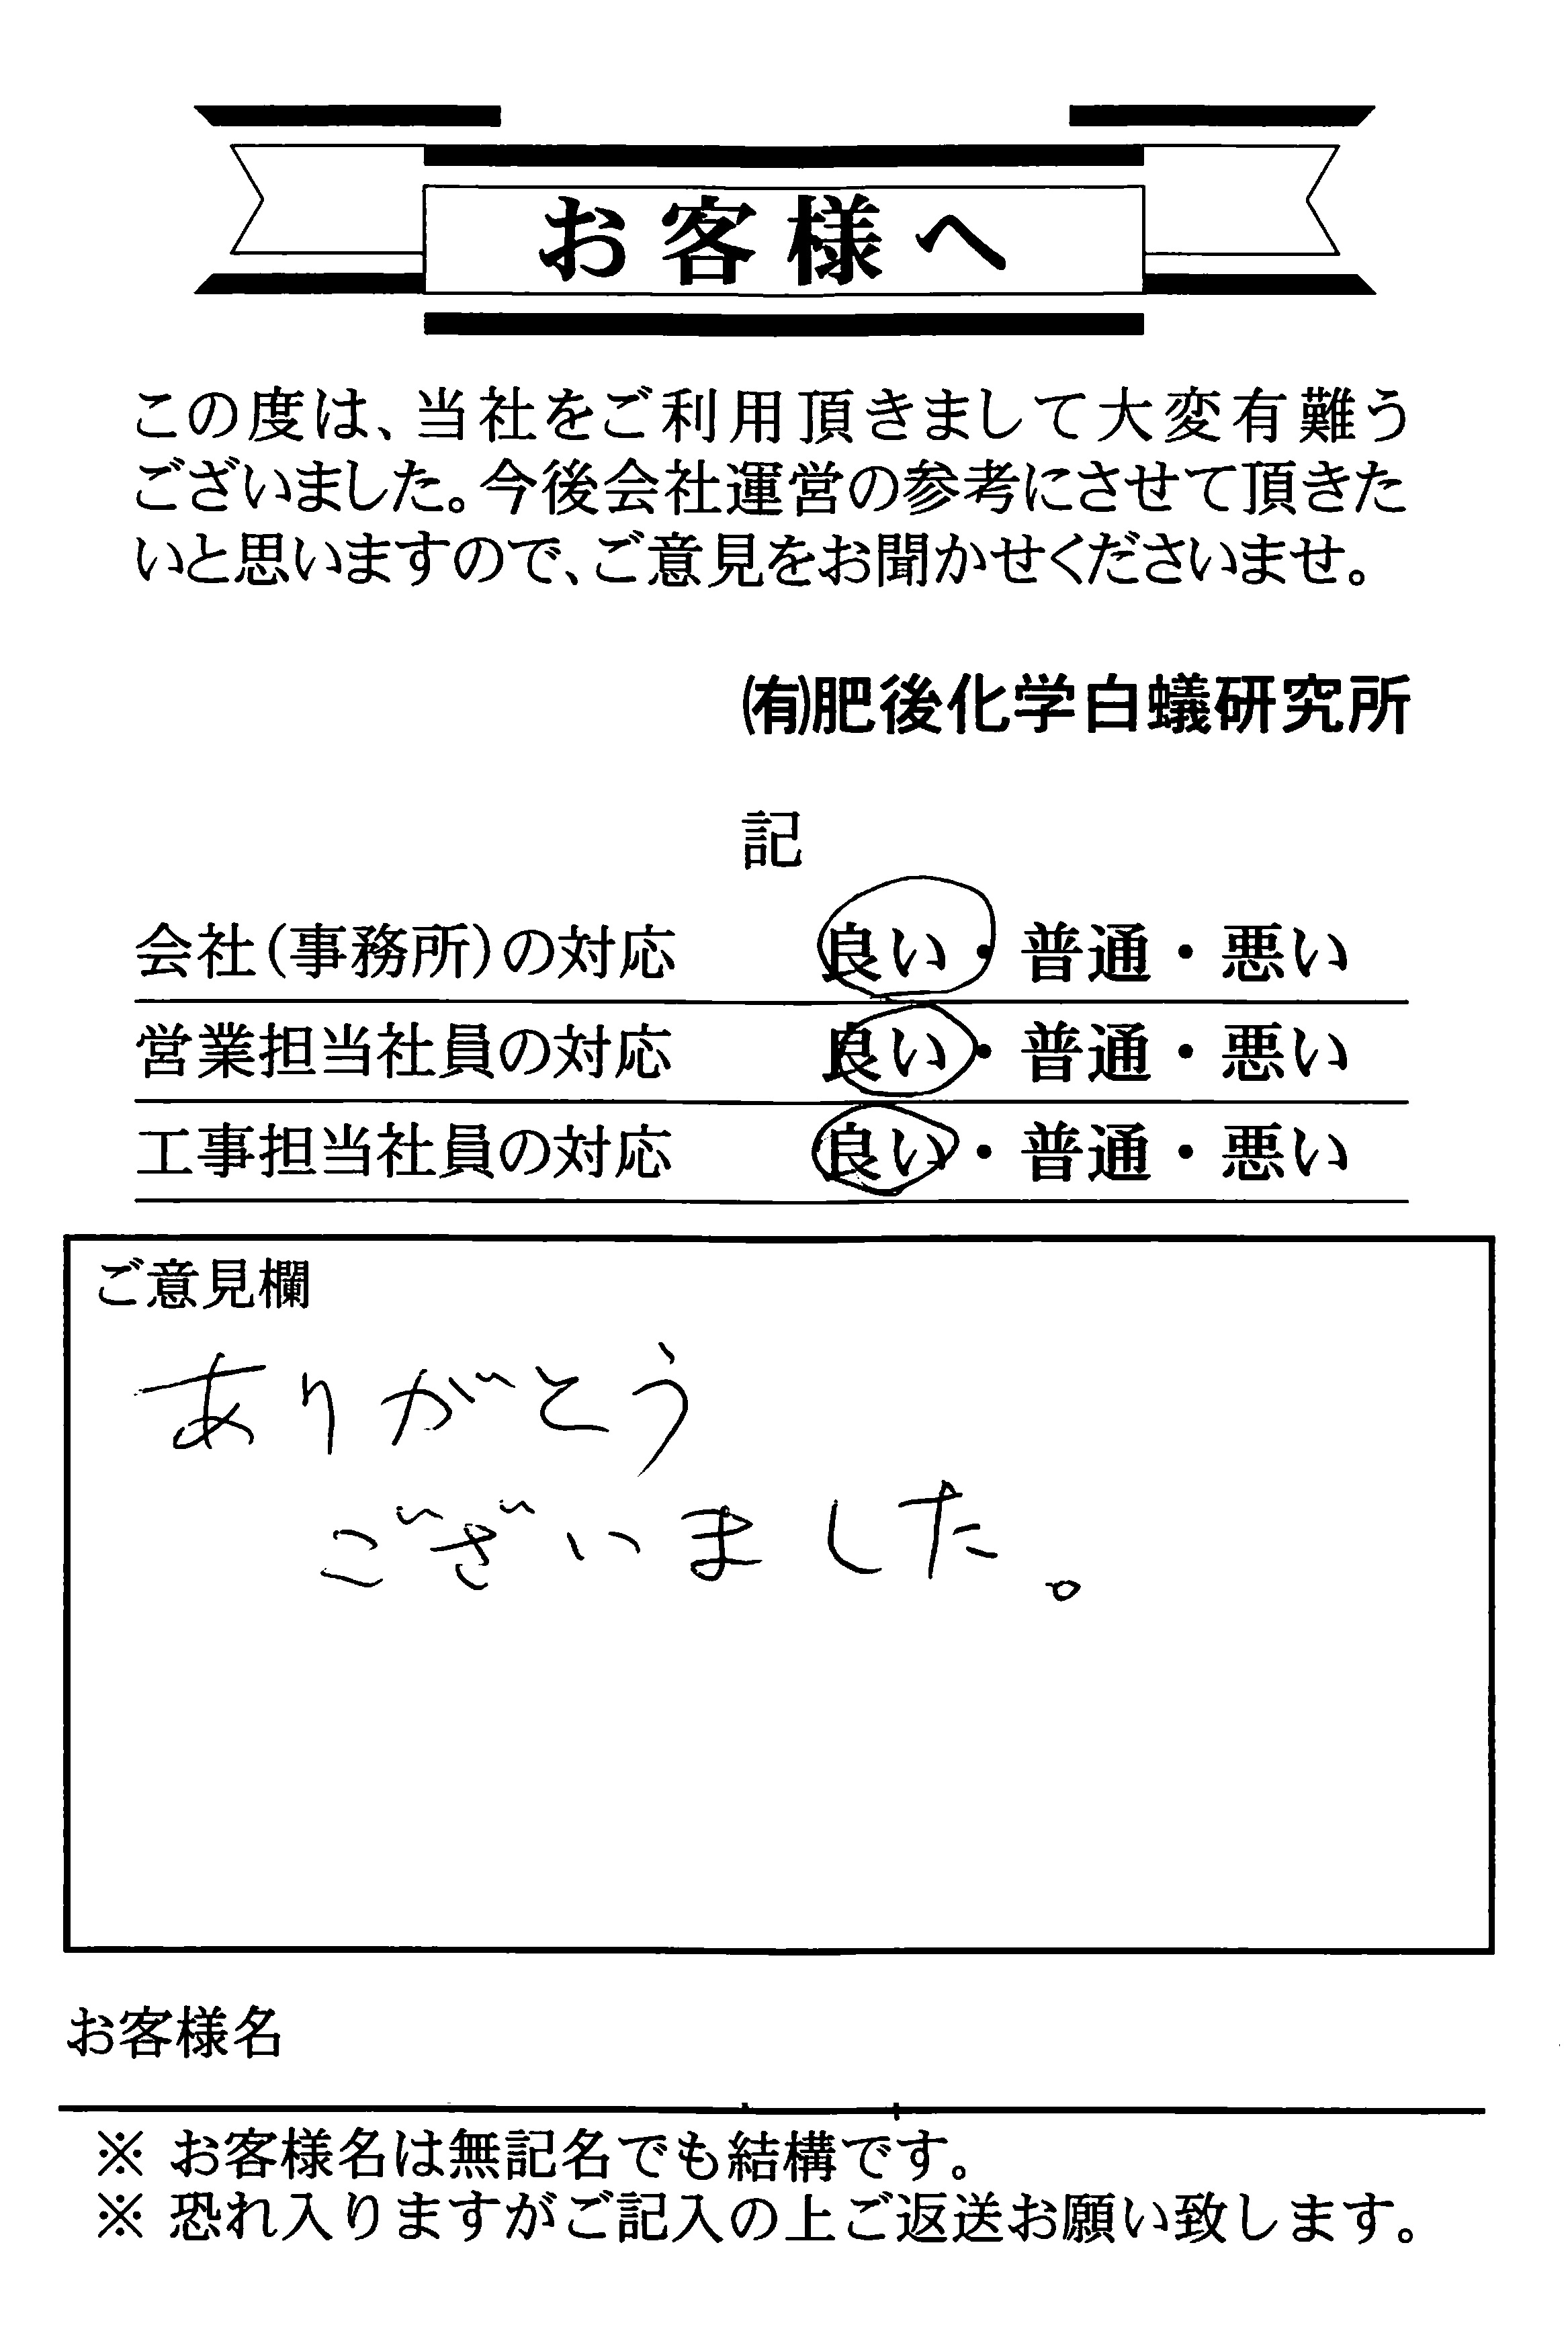 お客様へ
この度は、当社をご利用頂きまして大変有難う
ございました。今後会社運営の参考にさせて頂きた
いと思いますので、ご意見をお聞かせくださいませ。
㈲肥後化学白蟻研究所
記
会社(事務所)の対応 良い・普通・悪い
営業担当社員の対応 良い・普通・悪い
工事担当社員の対応 良い・普通・悪い
ご意見欄
ありがとう
ございました。
お客様名
※ お客様名は無記名でも結構です。
※ 恐れ入りますがご記入の上ご返送お願い致します。